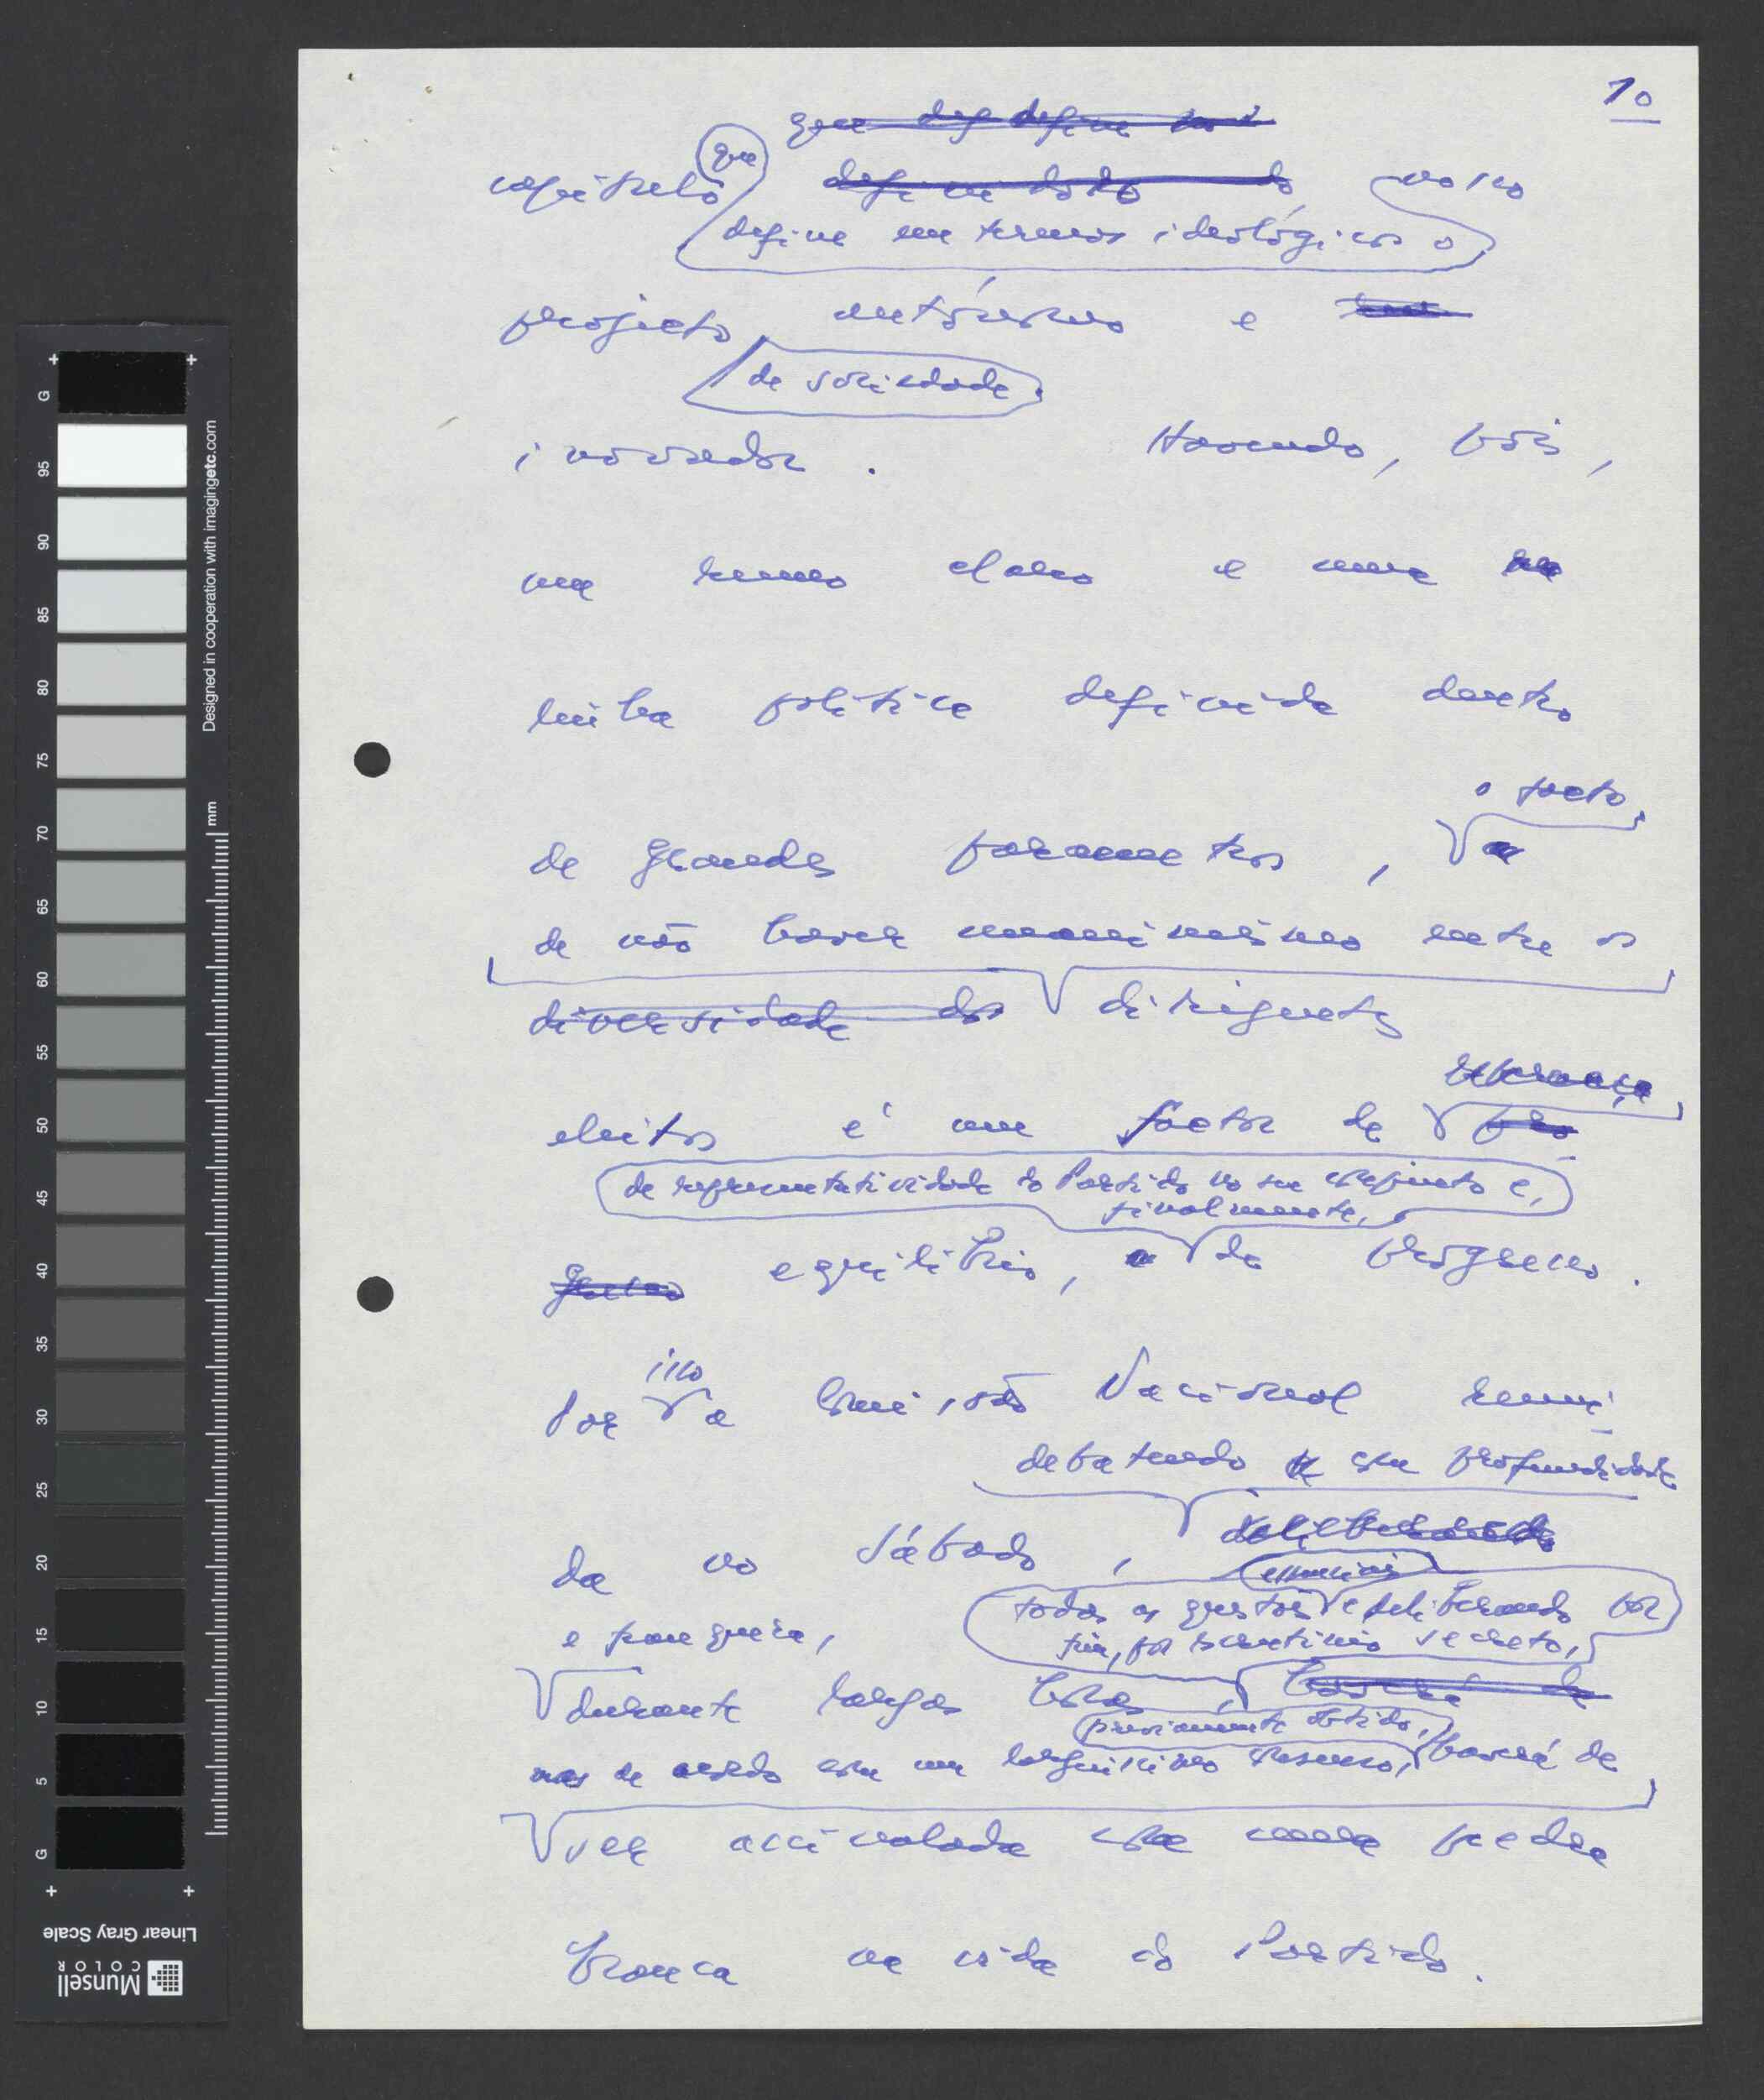 10
que define
que
capítulo definido do nosso
define em termos ideológicos o
projecto autónomo e
de sociedade
inovador. Havendo, pois,
um rumo claro e uma
linha política definida dentro
o facto
de grandes parametros, a
de não haver unanimismo entre os
diversidade dos dirigentes
eleitos é um factor de
de representatividade do Partido no seu conjunto e,
finalmente,
equilíbrio, e de progresso.
isso
Por a Comissão Nacional reuni
debatendo com profundidade
da no Sábado, deliberando
essenciais
todas as questões e deliberando por
e franqueza, fim, por escrutínio secreto,
durante largas horas, haverá de
previamente obtido,
mas de acordo com um larguíssimo consenso, haverá de
ser assinalada como uma pedra
branca na vida do Partido.
G
95
90
85
80
75
70
65
60
55
50
45
40
35
30
25
20
15
10
5
G
mm
Designed in cooperation with imagingetc.com
Linear Gray Scale
Munsell
COLOR